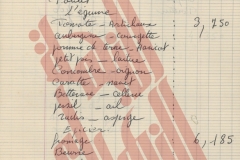 d'épaule
Tomate - Artichaux
3,750
aubergine - courgette
pomme de terre - Haricot
petit pois - laitue
Concombre - oignon
Carotte - navet
Betterave - cellerie
persil - ail
radis - asperge
Epicier
6,185
fromage
Beurre